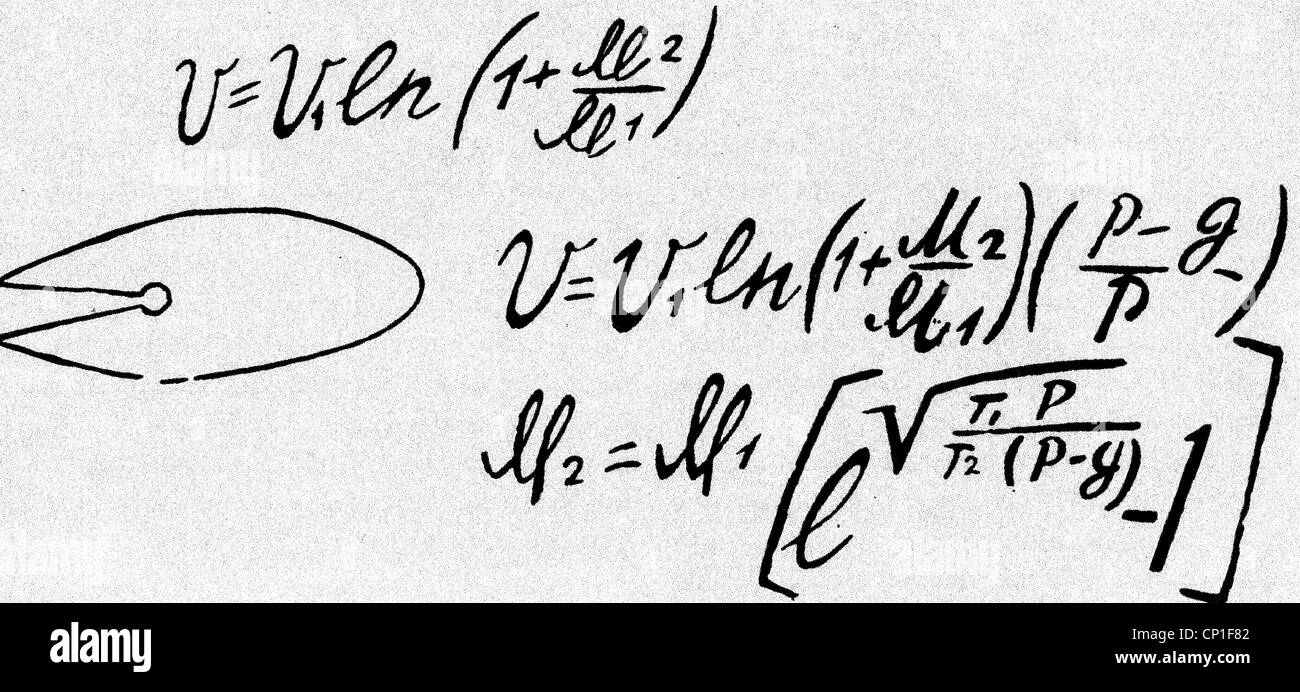 V = V₁ ln (1 + M2/M1)
V = V₁ ln (1 + M2/M1) (p - g/p)
M₂ = M₁ [e^√(T₁ p / T₂ (p-g)) - 1]
alamy
Image ID: CP1F82
www.alamy.com